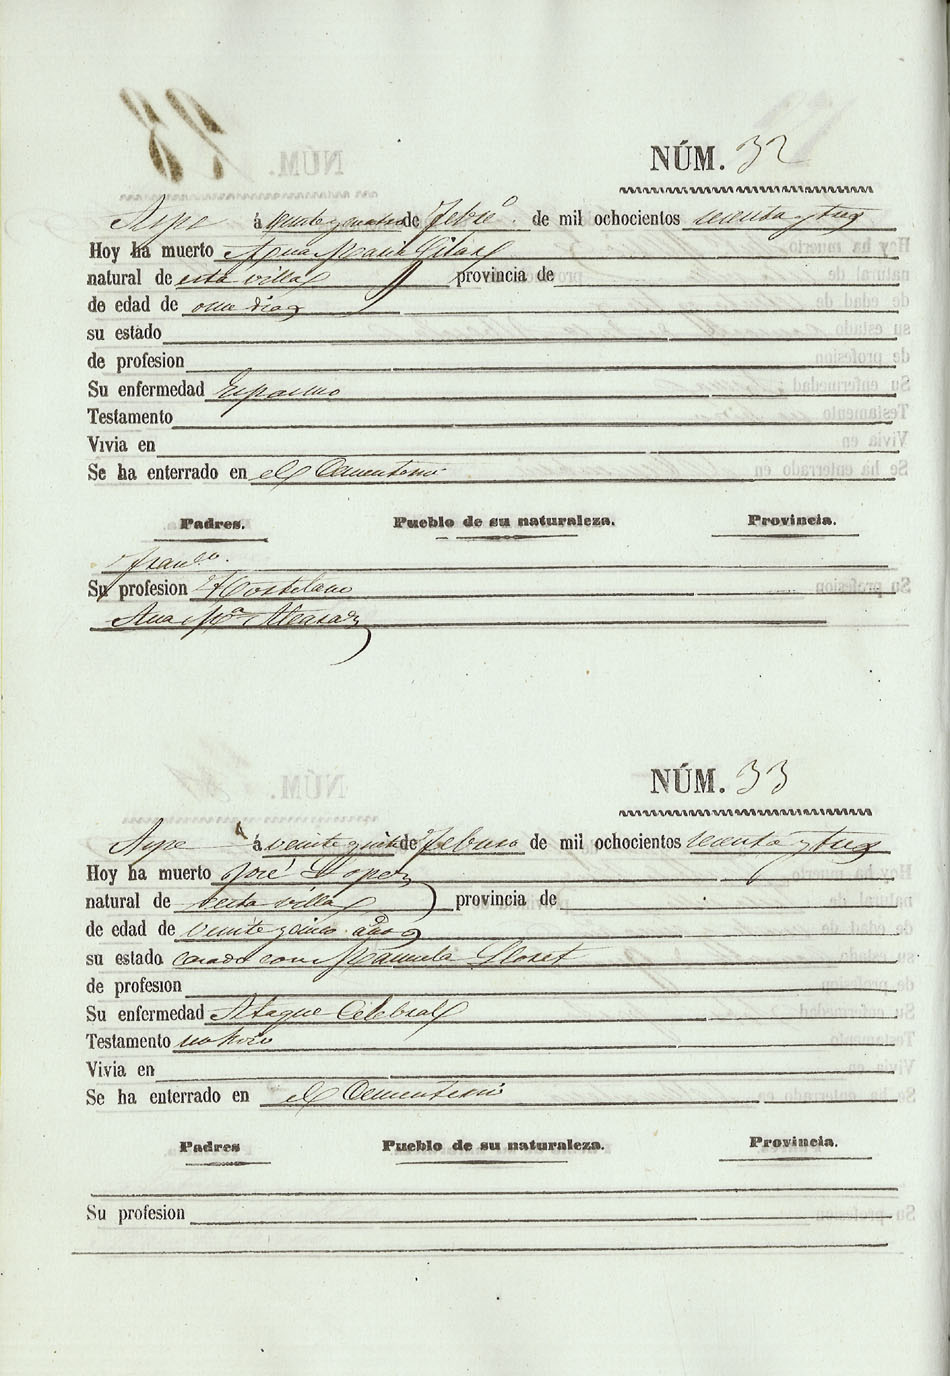 NÚM. 32
Aspe á veinte y cuatro de Febro. de mil ochocientos
Hoy ha muerto Maria
natural de esta villa provincia de
de edad de once dias
su estado
de profesion
Su enfermedad Espasmo
Testamento
Vivia en
Se ha enterrado en el Cementerio
Padres. Pueblo de su naturaleza. Provincia.
Franco.
Su profesion Hostelano
Ana Ma.
NÚM. 33
Aspe á veinte y de Febrero de mil ochocientos
Hoy ha muerto José Lopez
natural de esta villa provincia de
de edad de veinte y cinco años
su estado casado con Manuela Lloret
de profesion
Su enfermedad Ataque Celebral
Testamento no hizo
Vivia en
Se ha enterrado en el Cementerio
Padres Pueblo de su naturaleza. Provincia.
Su profesion